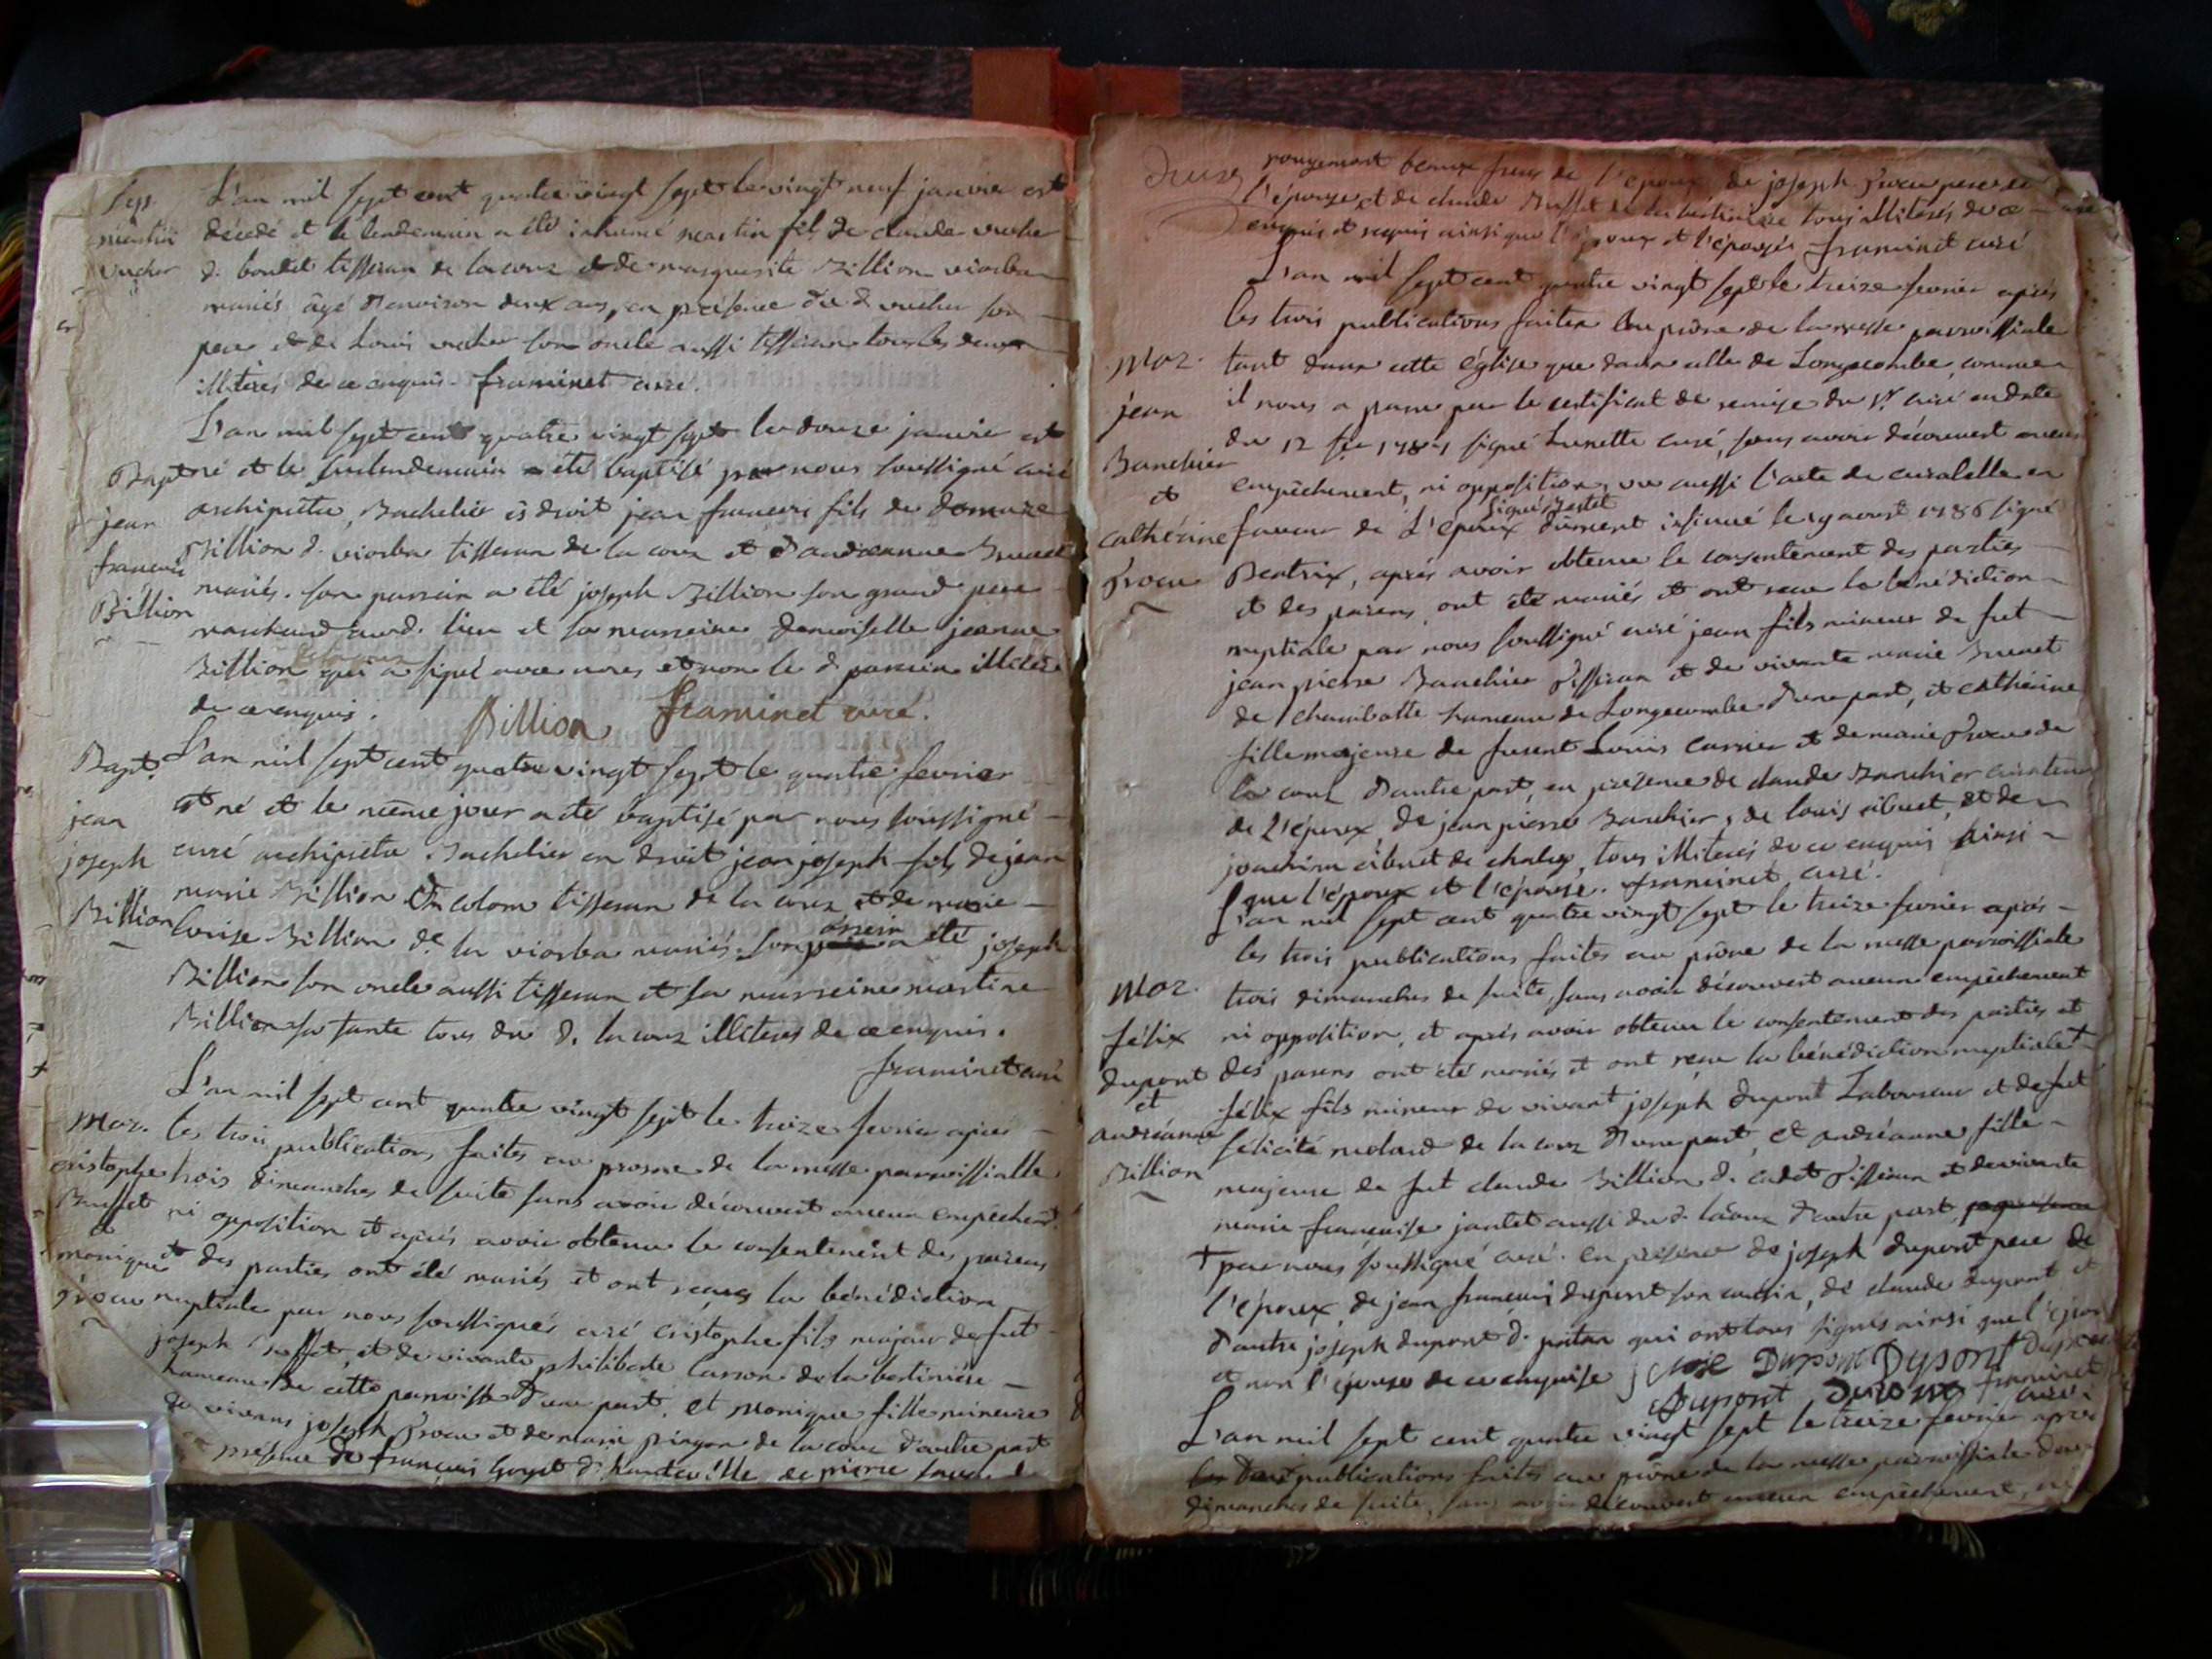 Sep.
martin
vucher
L'an mil sept cent quatre vingt sept le vingt neuf janvier est
décédé et le lendemain a été inhumé martin fils de claude vucher
d. boulet tisseran de lacoux et de marguerite Billion viorba
mariés âgé d'environ deux ans, en présence du d. vucher son
pere et de Louis vucher son oncle aussi tisseran tous les deux
illiterés de ce enquis. framinet curé.
Bapt.
jean
francois
Billion
L'an mil sept cent quatre vingt sept le douze janvier est
né et le surlendemain a été baptisé par nous soussigné curé
archiprêtre, Bachelier ès droit jean francois fils de
Billion d. viorba tisseran de la coux et d'andréanne Brunet
mariés. son parrain a été joseph Billion son grand pere
marchand aud. lieu et sa marraine demoiselle jeanne
Billion qui a signé avec nous et non le d. parrain illiteré
de ce enquis.
Billion framinet curé.
Bapt.
jean
joseph
Billion
L'an mil sept cent quatre vingt sept le quatre fevrier
est né et le même jour a été baptisé par nous soussigné
curé archiprêtre Bachelier en droit jean joseph fils de jean
marie Billion colom tisseran de la coux et de marie
Louise Billion de la viorba mariés. son parrein a été joseph
Billion son oncle aussi tisseran et sa marreine martine
Billion sa tante tous du d. lacoux illiterés de ce enquis.
framinet curé
Mar.
cristophe
Buffet
et
monique
L'an mil sept cent quatre vingt sept le treize fevrier après
les trois publications faites au prosne de la messe parroissialle
trois dimanches de suite sans avoir découvert aucun empêchemt.
ni opposition et après avoir obtenu le consentement des parens
et des parties ont été mariés et ont reçu la bénédiction
nuptiale par nous soussignés curé cristophe fils majeur de fut
joseph Buffet, et de vivante philiberte Carron de la bertinière
hameau de cette parroisse d'une part, et Monique fille mineure
de vivans joseph et de marie pingon de la coux d'autre part
en présence de francois goyet d'hauteville de pierre
rougemont beaux freres de l'époux, de joseph pere de
l'épouse et de claude Buffet de la bertinière tous illiterés de ce
enquis et requis ainsi que l'époux et l'épouse framinet curé
Mar.
jean
Banchier
et
cathérine
L'an mil sept cent quatre vingt sept le treize fevrier après
les trois publications faites au prône de la messe parroissiale
tant dans cette église que dans celle de Longecombe, comme
il nous a paru par le certificat de remise du Sr. curé en date
du 12 fer 1787 signé Lunette curé, sans avoir découvert aucun
empêchement, ni opposition, vu aussi l'acte de curatelle en
faveur de L'époux signé Jestet dûment insinué le 19 aoust 1786 signé
Beatrix, après avoir obtenu le consentement des parties
et des parens, ont été mariés et ont reçu la bénédiction
nuptiale par nous soussigné curé jean fils mineur de fut
jean pierre Banchier tisseran et de vivante marie Brunet
de chamibatte hameau de Longecombe d'une part, et cathérine
fille majeure de furent Louis carrier et de marie de
la coux d'autre part, en présence de claude Banchier curateur
de L'époux, de jean pierre Banchier, de louis cibuet, et de
joachim cibuet de chaley, tous illiterés de ce enquis ainsi
que l'époux et l'épouse. framinet curé.
Mar.
félix
dupont
et
andréanne
Billion
L'an mil sept cent quatre vingt sept le treize fevrier après
les trois publications faites au prône de la messe parroissiale
trois dimanches de suite, sans avoir découvert aucun empêchement
ni opposition, et après avoir obtenu le consentement des parties et
des parens ont été mariés et ont reçu la bénédiction nuptiale +
félix fils mineur de vivant joseph dupont Laboureur et de fut
félicité molard de la coux d'une part, et andréanne fille
majeure de fut claude Billion d. cadet tisseran et de vivante
marie francoise jantet aussi du d. lacoux d'autre part
+ par nous soussigné curé. en présence de joseph dupont pere de
l'époux, de jean francois dupont son cousin, de claude dupont et
d'autre joseph dupont d. qui ont tous signés ainsi que l'époux
et non l'épouse de ce enquise Dupont Dupont dupont
Dupont Dupont framinet curé.
L'an mil sept cent quatre vingt sept le treize fevrier après
publications faites au prône de la messe parroissiale deux
dimanches de suite, sans avoir découvert aucun empêchement, ni